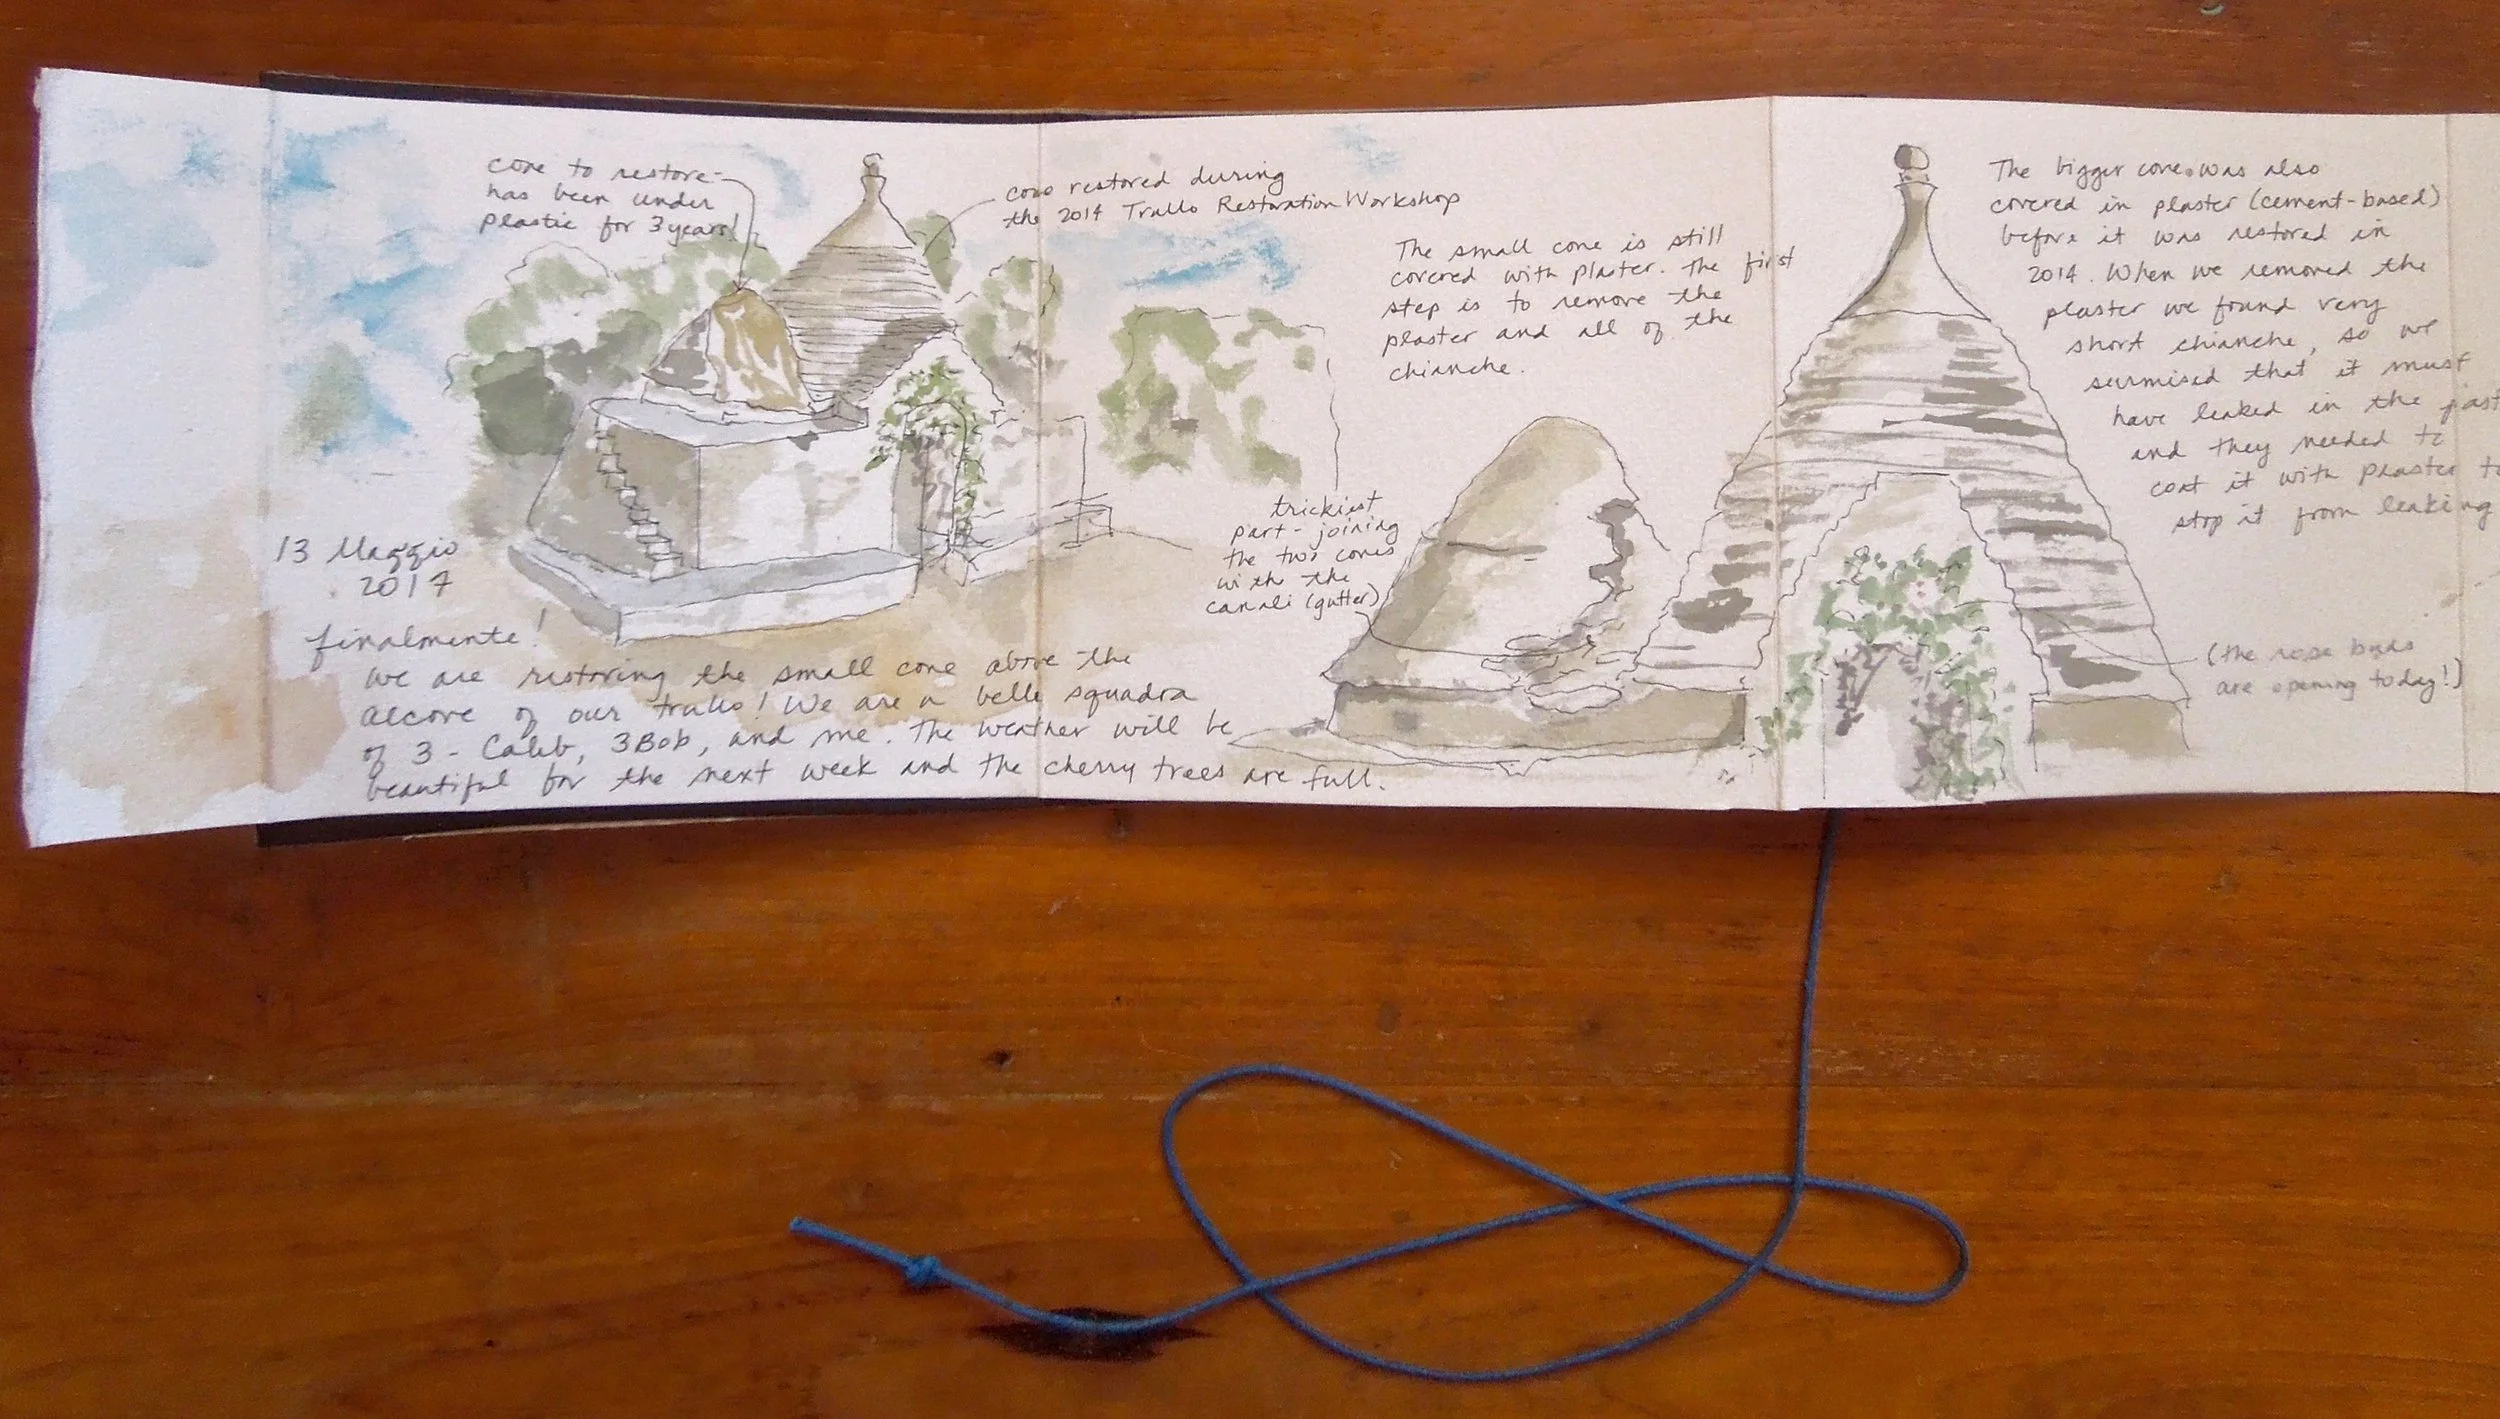 cone to restore-
has been under
plastic for 3 years!
cone restored during
the 2014 Trullo Restoration Workshop
13 Maggio
2017
finalmente!
We are restoring the small cone above the
alcove of our trullo! We are a belle squadra
of 3 - Caleb, 3Bob, and me. The weather will be
beautiful for the next week and the cherry trees are full.
The small cone is still
covered with plaster. The first
step is to remove the
plaster and all of the
chianche.
trickiest
part - joining
the two cones
with the
canali (gutter)
The bigger cone was also
covered in plaster (cement-based)
before it was restored in
2014. When we removed the
plaster we found very
short chianche, so we
surmised that it must
have leaked in the past
and they needed to
coat it with plaster to
stop it from leaking
(the rose buds
are opening today!)